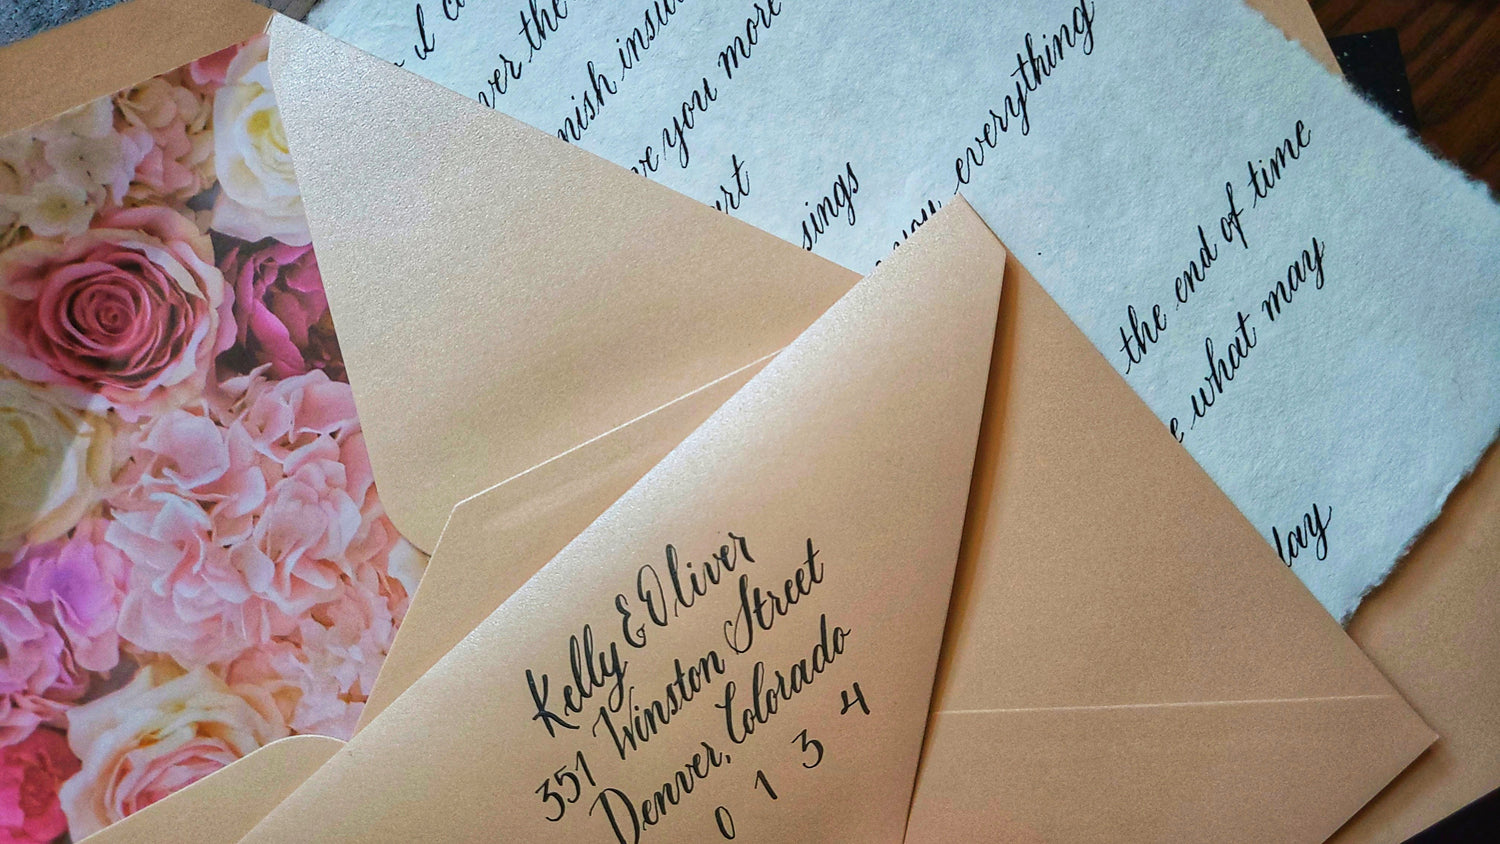 I
the
insu
you more
sings
you everything
the end of time
what may
Kelly & Oliver
351 Winston Street
Denver, Colorado
0 1 3 4